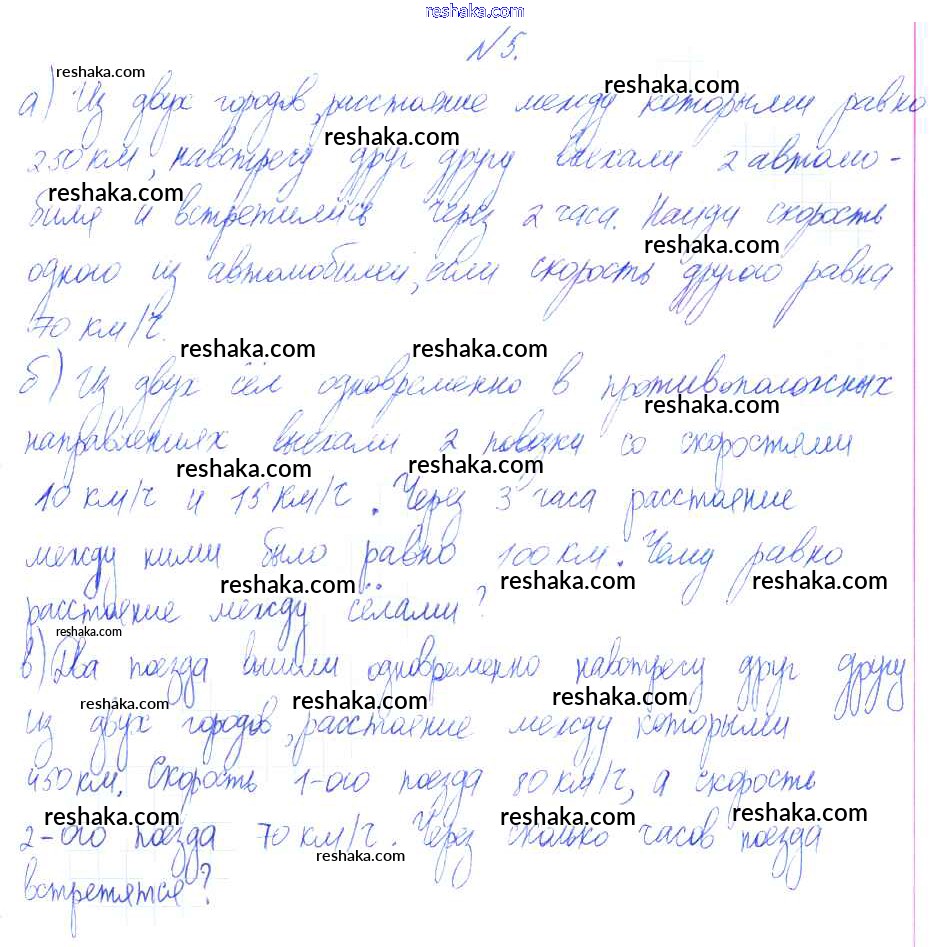 reshaka.com
№5.
reshaka.com
reshaka.com
а) Из двух городов, расстояние между которыми равно
reshaka.com
250 км, навстречу друг другу выехали 2 автомо-
reshaka.com
биля и встретились через 2 часа. Найди скорость
reshaka.com
одного из автомобилей, если скорость другого равна
70 км/ч.
reshaka.com reshaka.com
б) Из двух сёл одновременно в противоположных
reshaka.com
направлениях выехали 2 повозки со скоростями
reshaka.com reshaka.com
10 км/ч и 15 км/ч. Через 3 часа расстояние
между ними было равно 100 км. Чему равно
reshaka.com reshaka.com reshaka.com
расстояние между сёлами?
reshaka.com
в) Два поезда вышли одновременно навстречу друг другу
reshaka.com reshaka.com reshaka.com
из двух городов, расстояние между которыми
450 км. Скорость 1-ого поезда 80 км/ч, а скорость
reshaka.com reshaka.com reshaka.com
2-ого поезда 70 км/ч. Через сколько часов поезда
reshaka.com
встретятся?